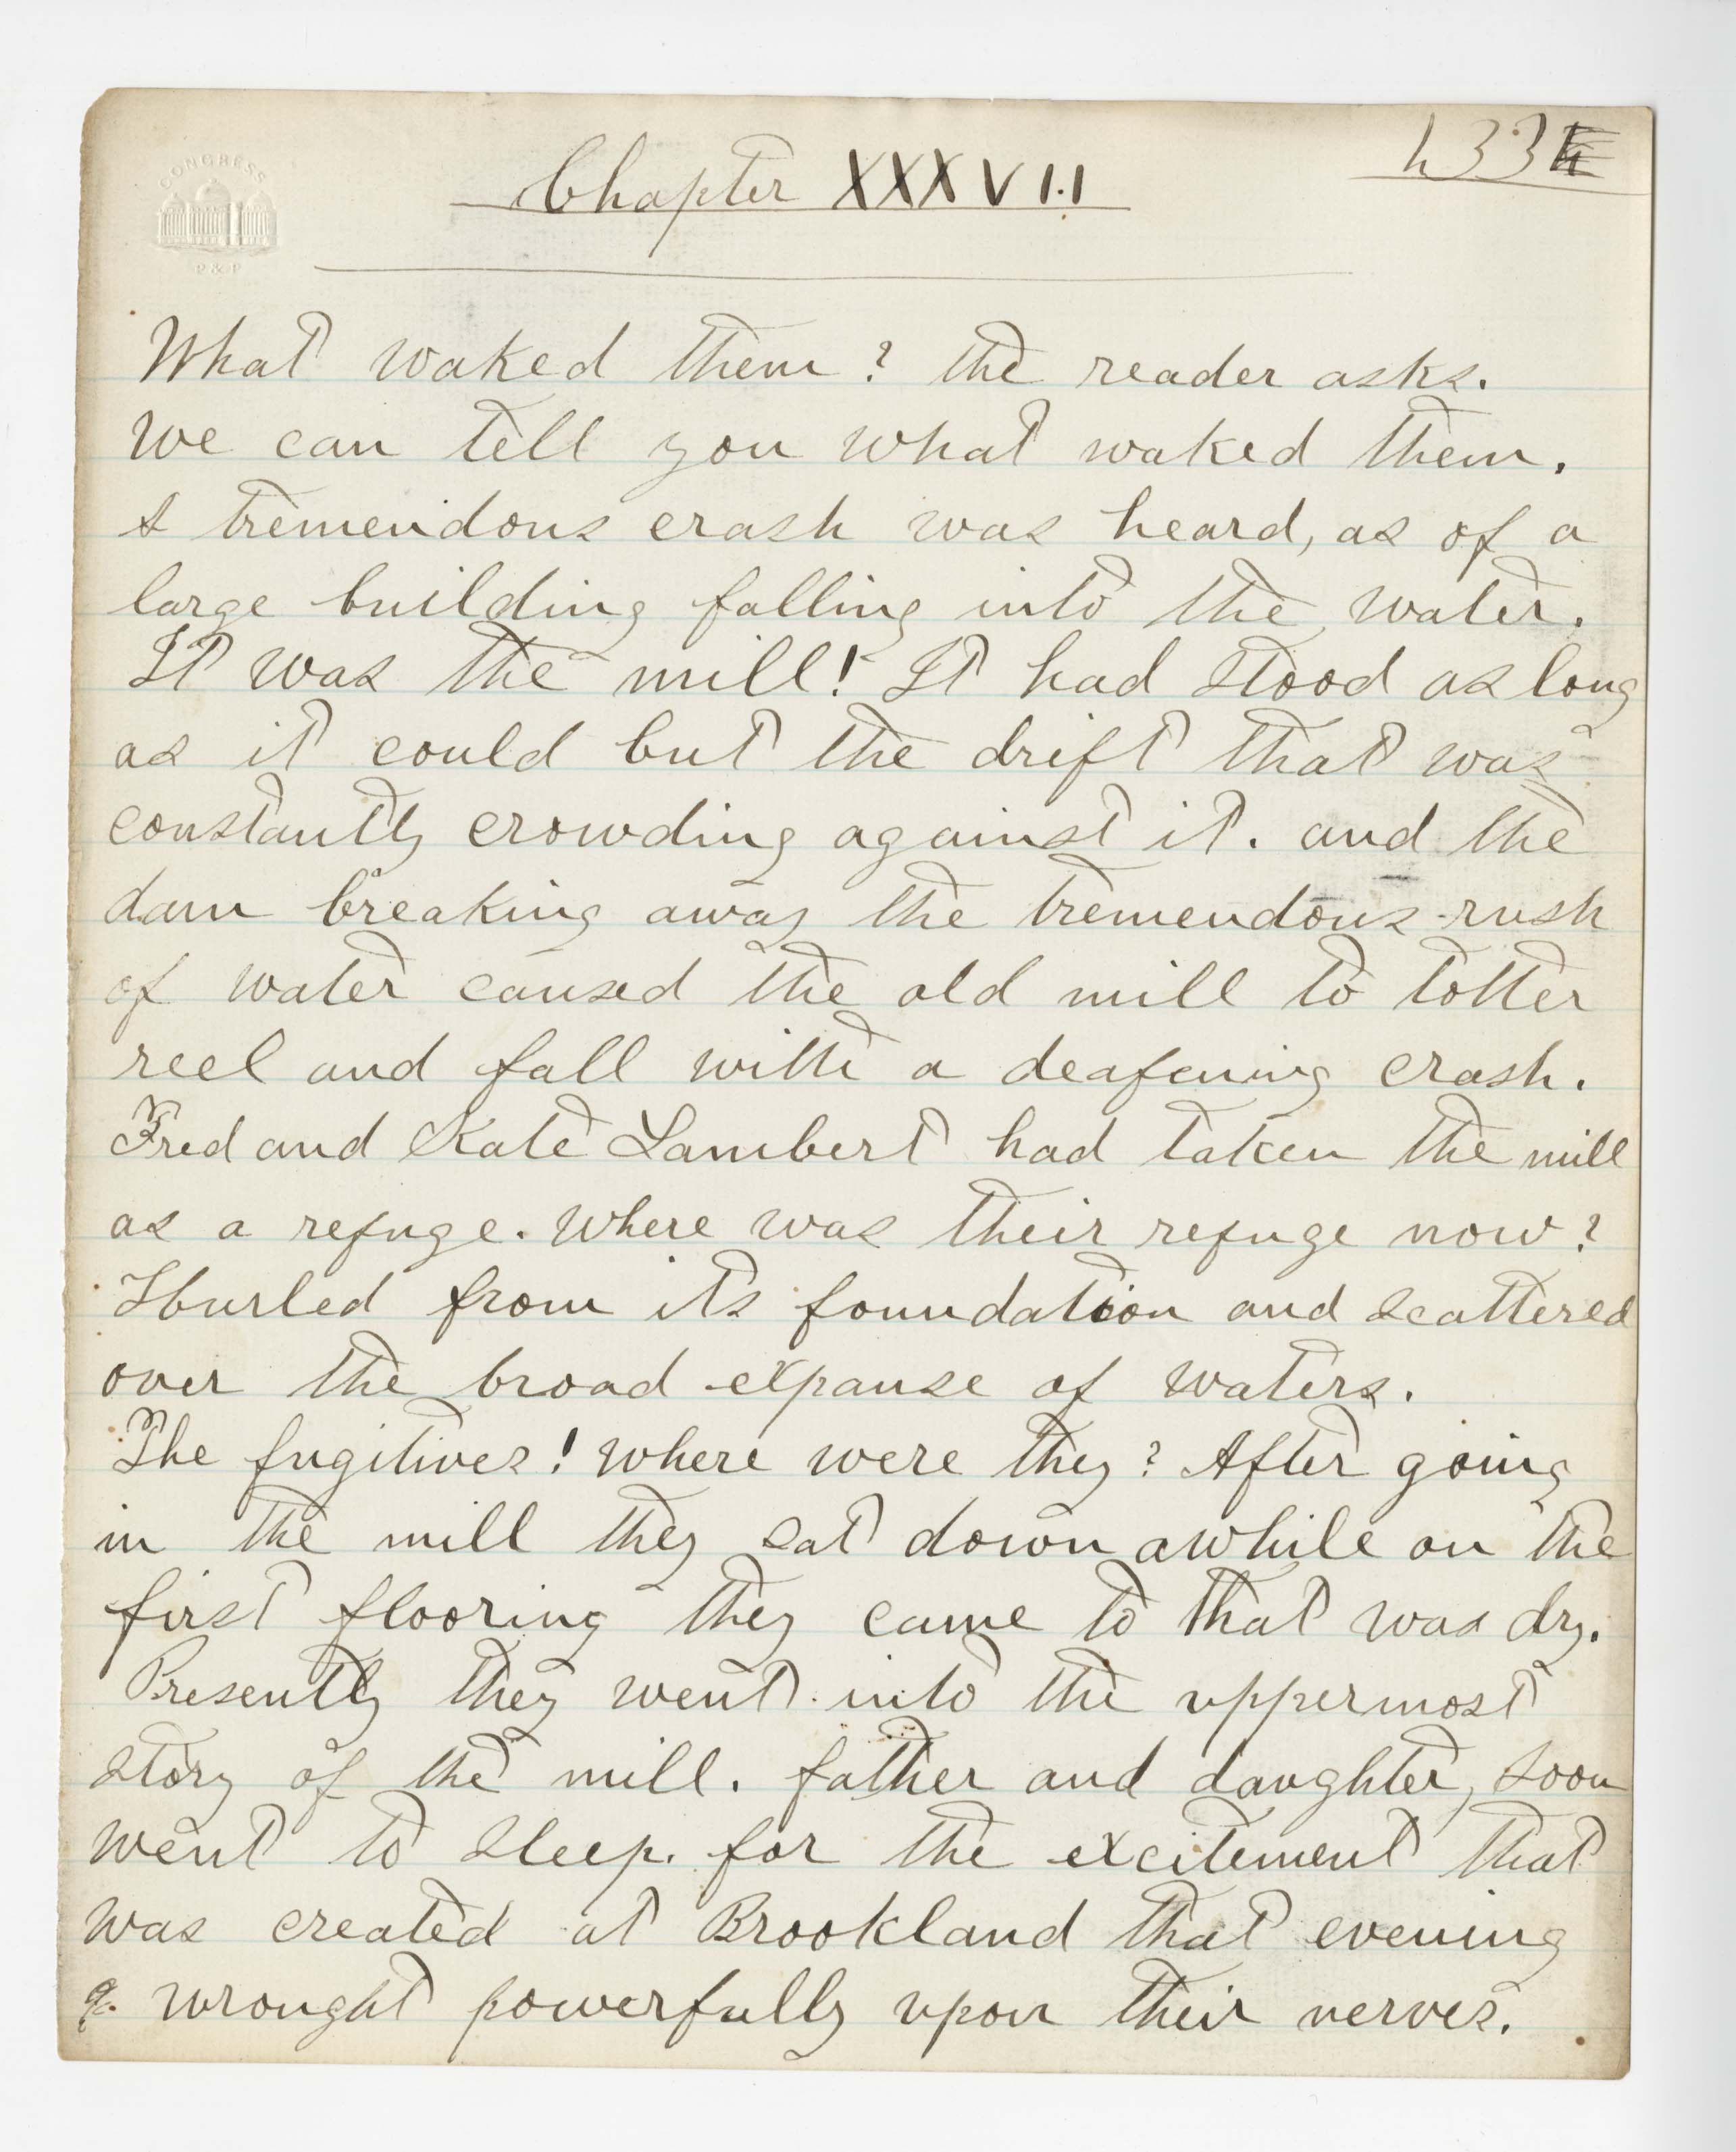 CONGRESS
P & P
Chapter XXXVII
433
What waked them? the reader asks.
We can tell you what waked them.
A tremendous crash was heard, as of a
large building falling into the water.
It was the mill! It had stood as long
as it could but the drift that was
constantly crowding against it. and the
dam breaking away the tremendous rush
of water caused the old mill to totter
reel and fall with a deafening crash.
Fred and Kate Lambert had taken the mill
as a refuge. Where was their refuge now?
Hurled from its foundation and scattered
over the broad expanse of waters.
The fugitives! Where were they? After going
in the mill they sat down awhile on the
first flooring they came to that was dry.
Presently they went into the uppermost
story of the mill. father and daughter, soon
went to sleep. for the excitement that
was created at Brookland that evening
wrought powerfully upon their nerves.